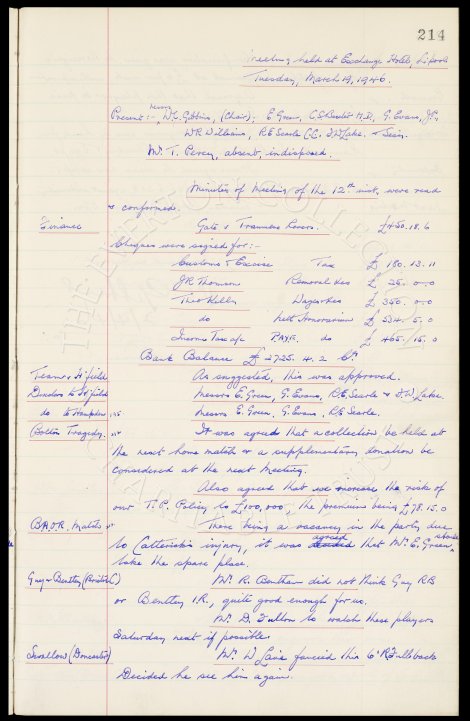 214
Meeting held at Exchange Hotel, L'pool
Tuesday, March 19, 1946.
Present:- Messrs W.C. Gibbins, (Chair); E Green, C.S. Baxter M.D., G. Evans, J.P.,
W R Williams, R E Searle C.C. F.W. Lake. & Secy.
Mr. T. Percy, absent, indisposed.
Minutes of Meeting of the 12th inst. were read
& confirmed.
Finance Gate v Tranmere Rovers. £450.18.6
Cheques were signed for:-
Customs & Excise Tax £ 180.13.11
J R Thomson Removal Exes £ 25.0.0
Theo Kelly Wages &es £ 350.0.0
do Nett Honorarium £ 534.5.0
Income Tax a/c PAYE. do £ 465.15.0
Bank Balance £ 2725.4.2 Cr
Team v H'field As suggested, this was approved.
Directors to H'field Messrs E. Green, G. Evans, R.E. Searle & F.W. Lake.
do to Messrs E. Green, G. Evans, R.E. Searle.
Bolton Tragedy. It was agreed that a collection be held at
the next home match & a supplementary donation be
considered at the next meeting.
Also agreed that we increase the risks of
our T.P. Policy to £100,000, the premiums being £78.15.0
B.A.O.R. Match There being a vacancy in the party due
to Catterick's injury, it was agreed that Mr. E. Green should
take the spare place.
Guy & Bentley (Bristol C) Mr. R. Bentham did not think Guy RB
or Bentley I.R., quite good enough for us.
Mr. D. Fulton to watch these players
Saturday next if possible.
Swallow (Doncaster) Mr. W Laine fancied this 6' R. Fullback
Decided he see him again.
THE EVERTON COLLECTION